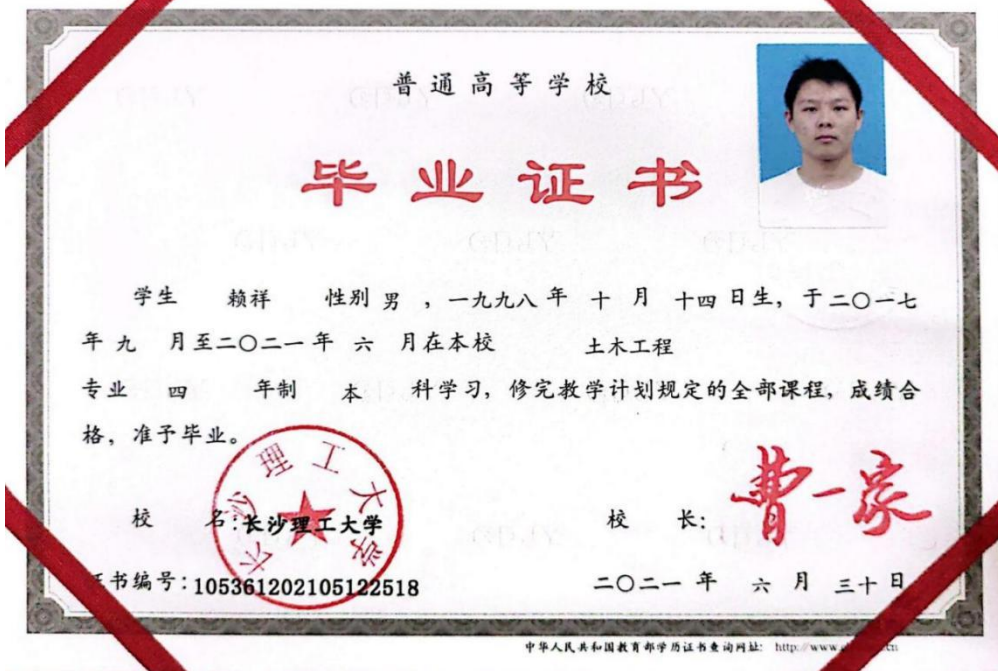 普通高等学校
毕业证书
学生 赖祥 性别 男 ，一九九八 年 十 月 十四 日生，于二〇一七
年 九 月至二〇二一年 六 月在本校 土木工程
专业 四 年制 本 科学习，修完教学计划规定的全部课程，成绩合
格，准予毕业。
长沙理工大学
校 名：长沙理工大学 校 长：曹一家
书编号：105361202105122518 二〇二一 年 六 月 三十 日
中华人民共和国教育部学历证书查询网址： http://www.